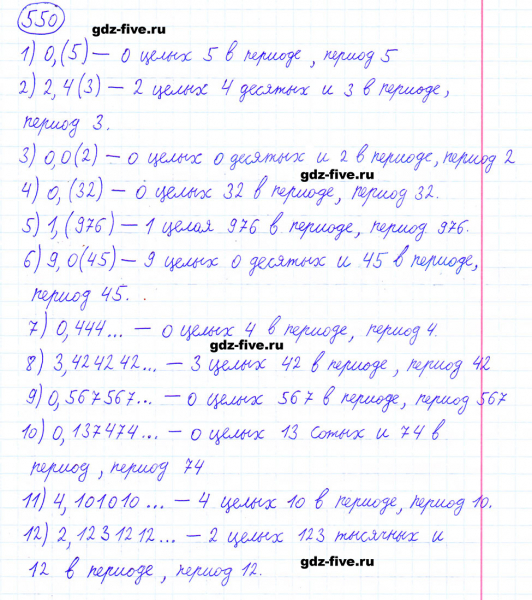 550
gdz-five.ru
1) 0,(5) — 0 целых 5 в периоде, период 5
2) 2,4(3) — 2 целых 4 десятых и 3 в периоде,
период 3.
3) 0,0(2) — 0 целых 0 десятых и 2 в периоде, период 2
gdz-five.ru
4) 0,(32) — 0 целых 32 в периоде, период 32.
5) 1,(976) — 1 целая 976 в периоде, период 976.
6) 9,0(45) — 9 целых 0 десятых и 45 в периоде,
период 45.
7) 0,444... — 0 целых 4 в периоде, период 4.
gdz-five.ru
8) 3,424242... — 3 целых 42 в периоде, период 42
9) 0,567567... — 0 целых 567 в периоде, период 567
10) 0,137474... — 0 целых 13 сотых и 74 в
период, период 74
11) 4,101010... — 4 целых 10 в периоде, период 10.
12) 2,1231212... — 2 целых 123 тысячных и
12 в периоде, период 12.
gdz-five.ru